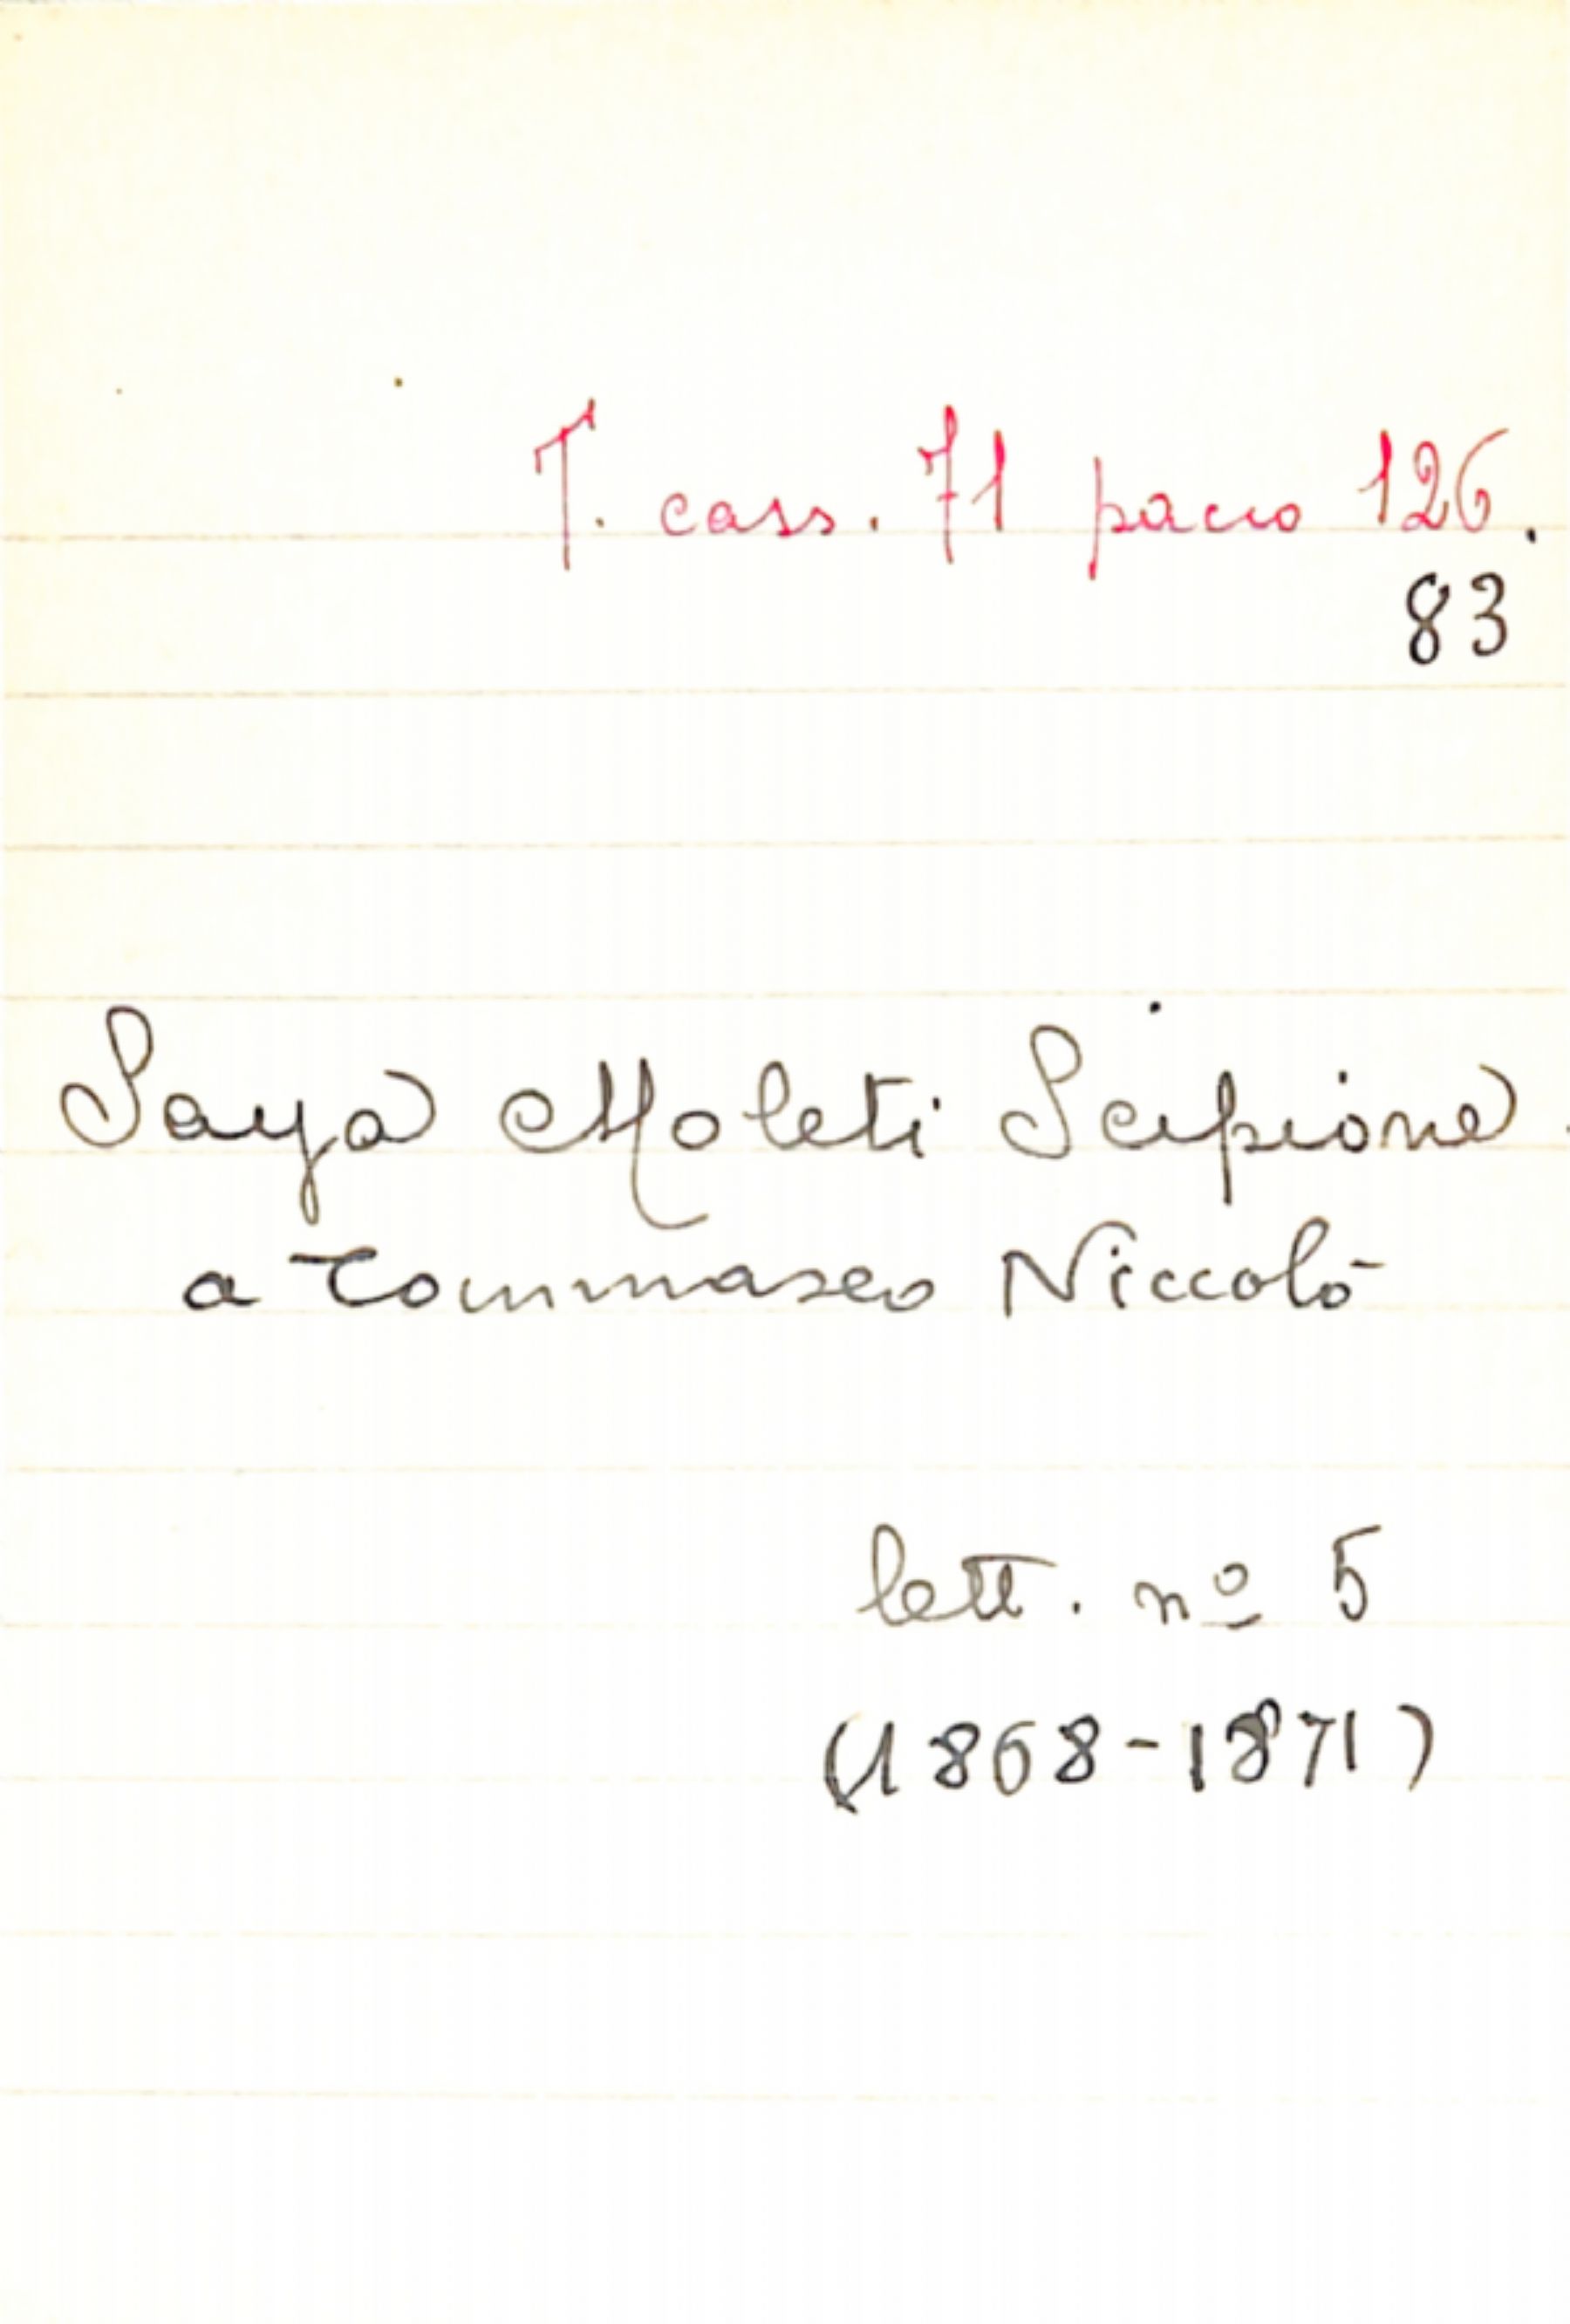 T. cass. 71 pacco 126.
83
Saya Moleti Scipione
a Tommaseo Niccolò
lett. nº 5
(1868-1871)